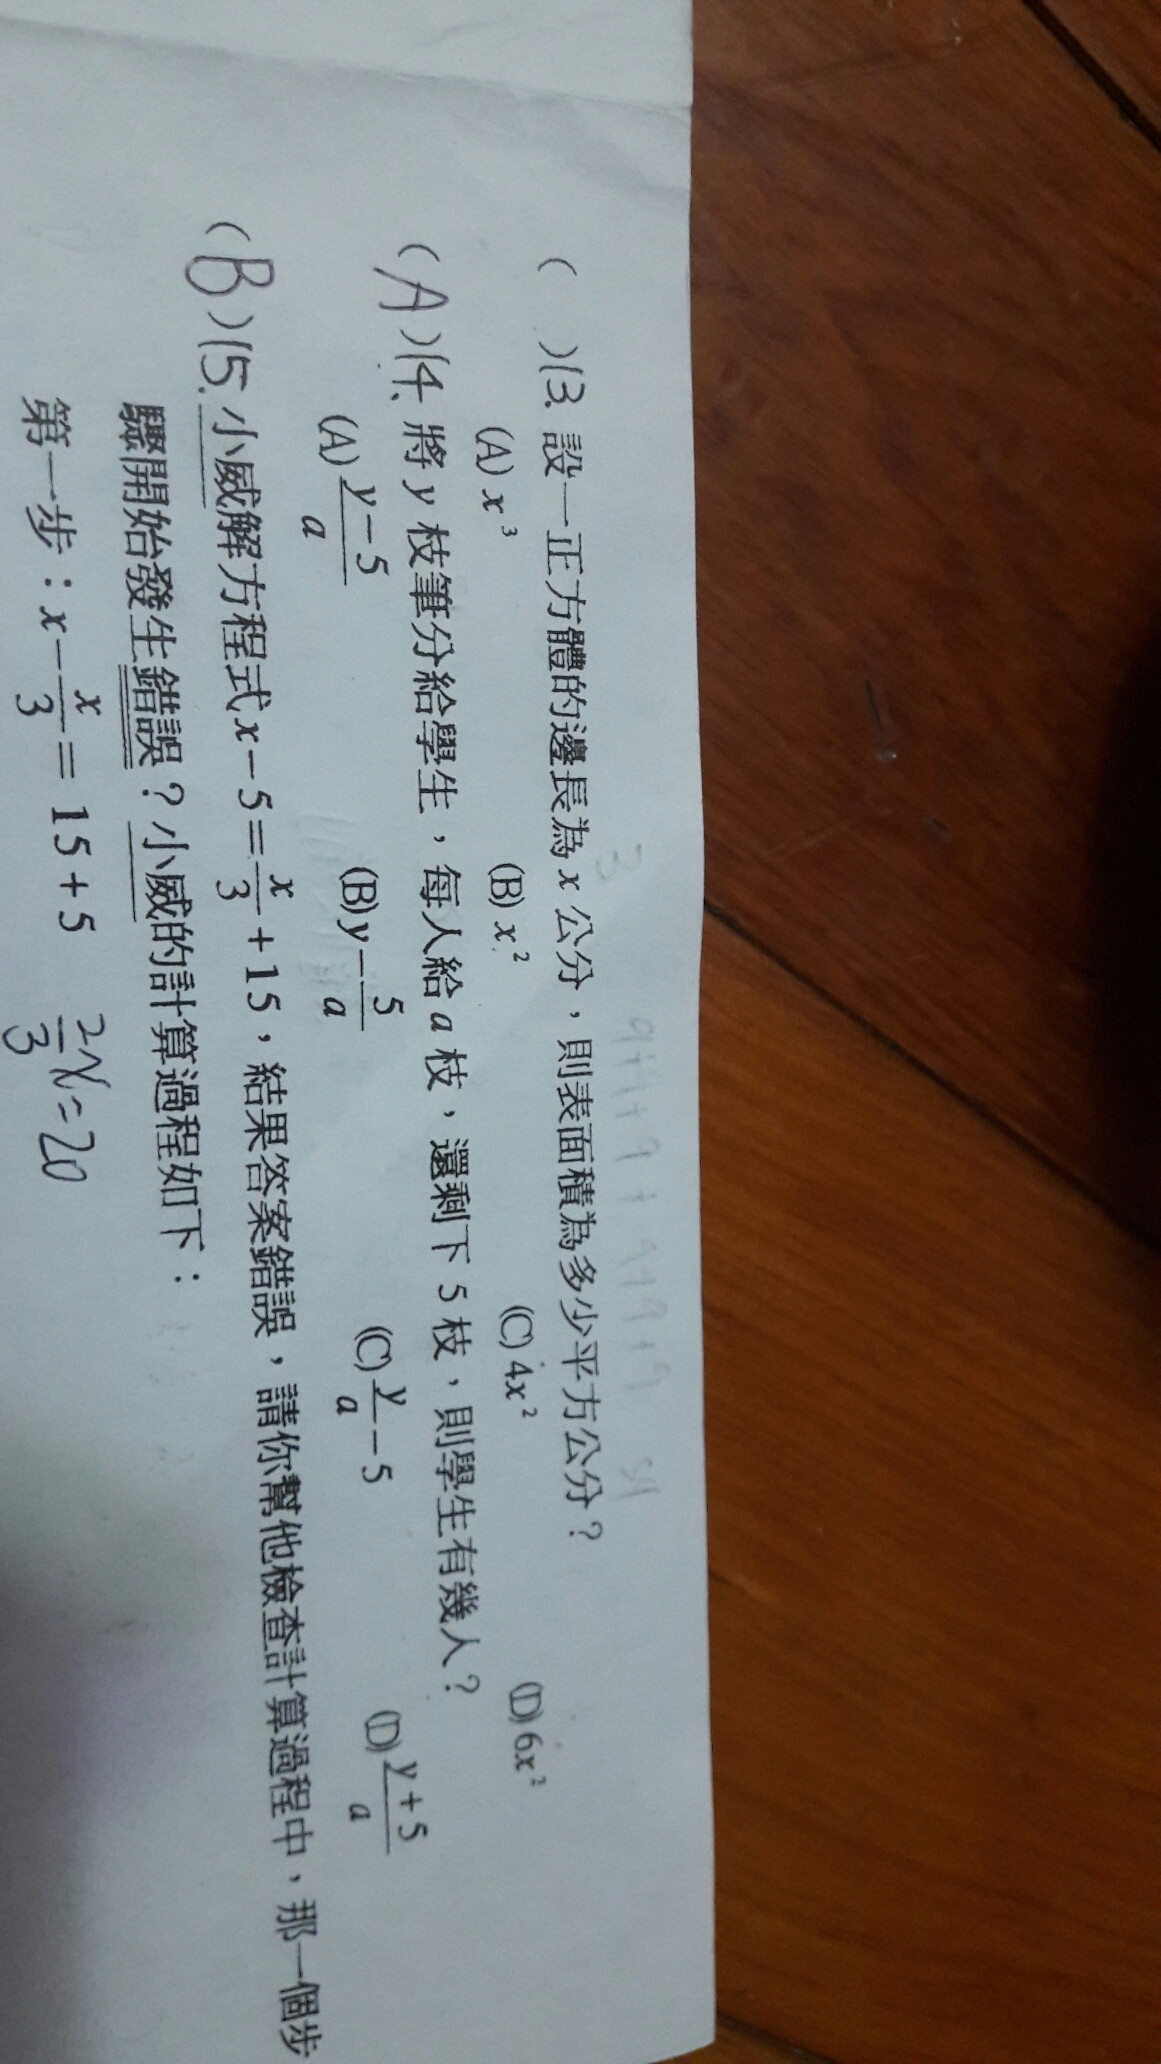 3
9+9+9+9+9+9 54
( )13. 設一正方體的邊長為 x 公分，則表面積為多少平方公分？
(A) x³ (B) x² (C) 4x² (D) 6x²
(A)14. 將 y 枝筆分給學生，每人給 a 枝，還剩下 5 枝，則學生有幾人？
(A) y−5/a (B) y−5/a (C) y/a−5 (D) y+5/a
(B)15. 小威解方程式 x−5=x/3+15，結果答案錯誤，請你幫他檢查計算過程中，那一個步
驟開始發生錯誤？小威的計算過程如下：
第一步：x−x/3=15+5 2x/3=20